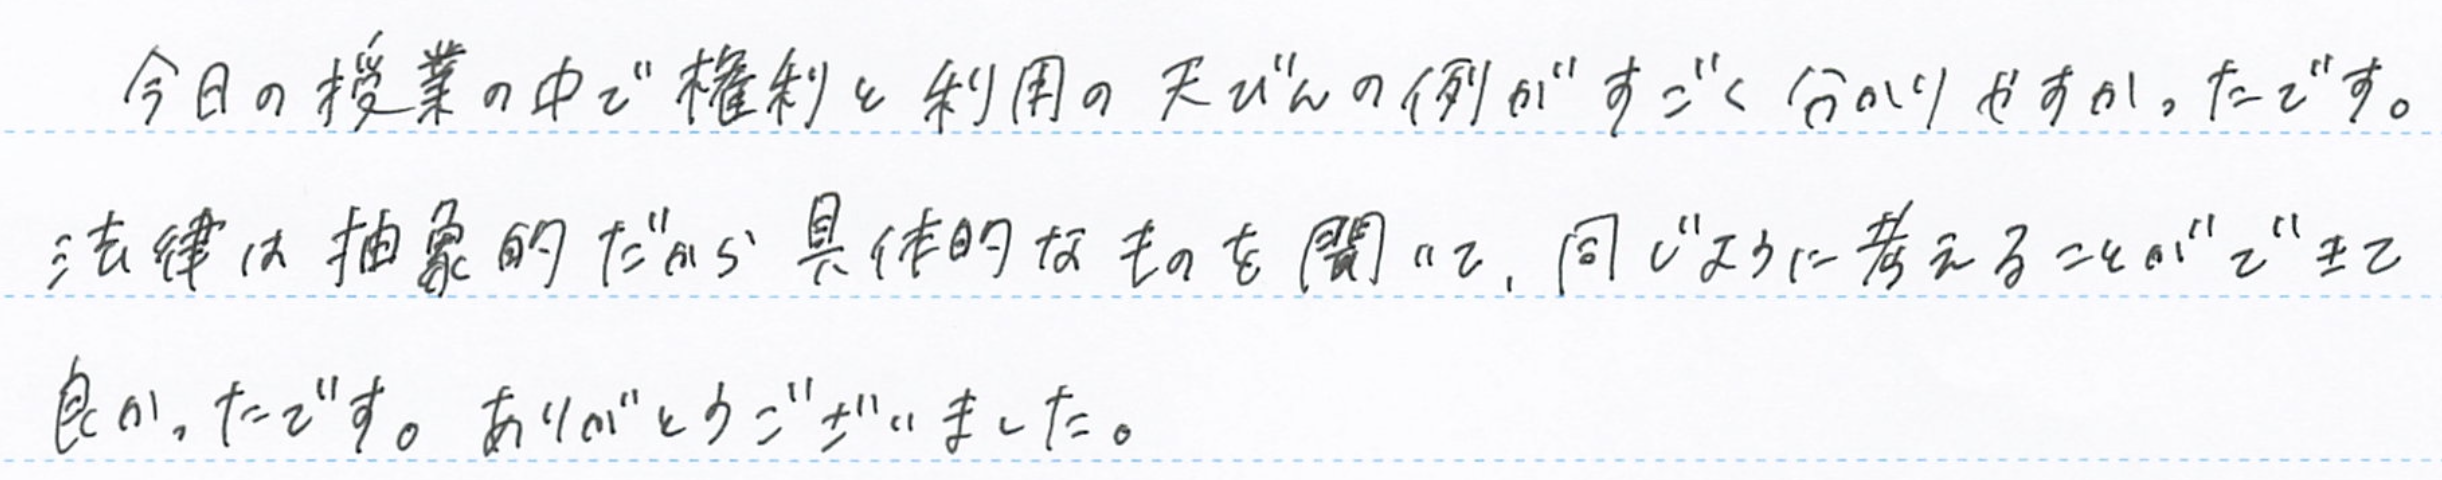 今日の授業の中で権利と利用の天びんの例がすごく分かりやすかったです。
法律は抽象的だから具体的なものを聞いて、同じように考えることができて
良かったです。ありがとうございました。